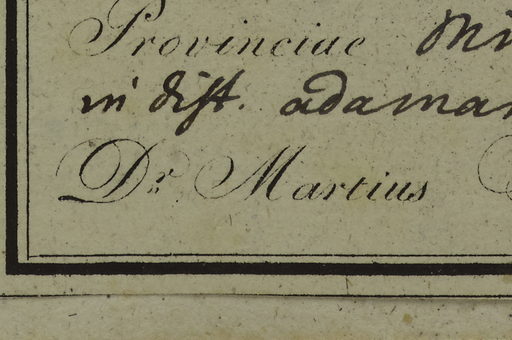 Provinciae Mi
in dist. adaman
Dr. Martius